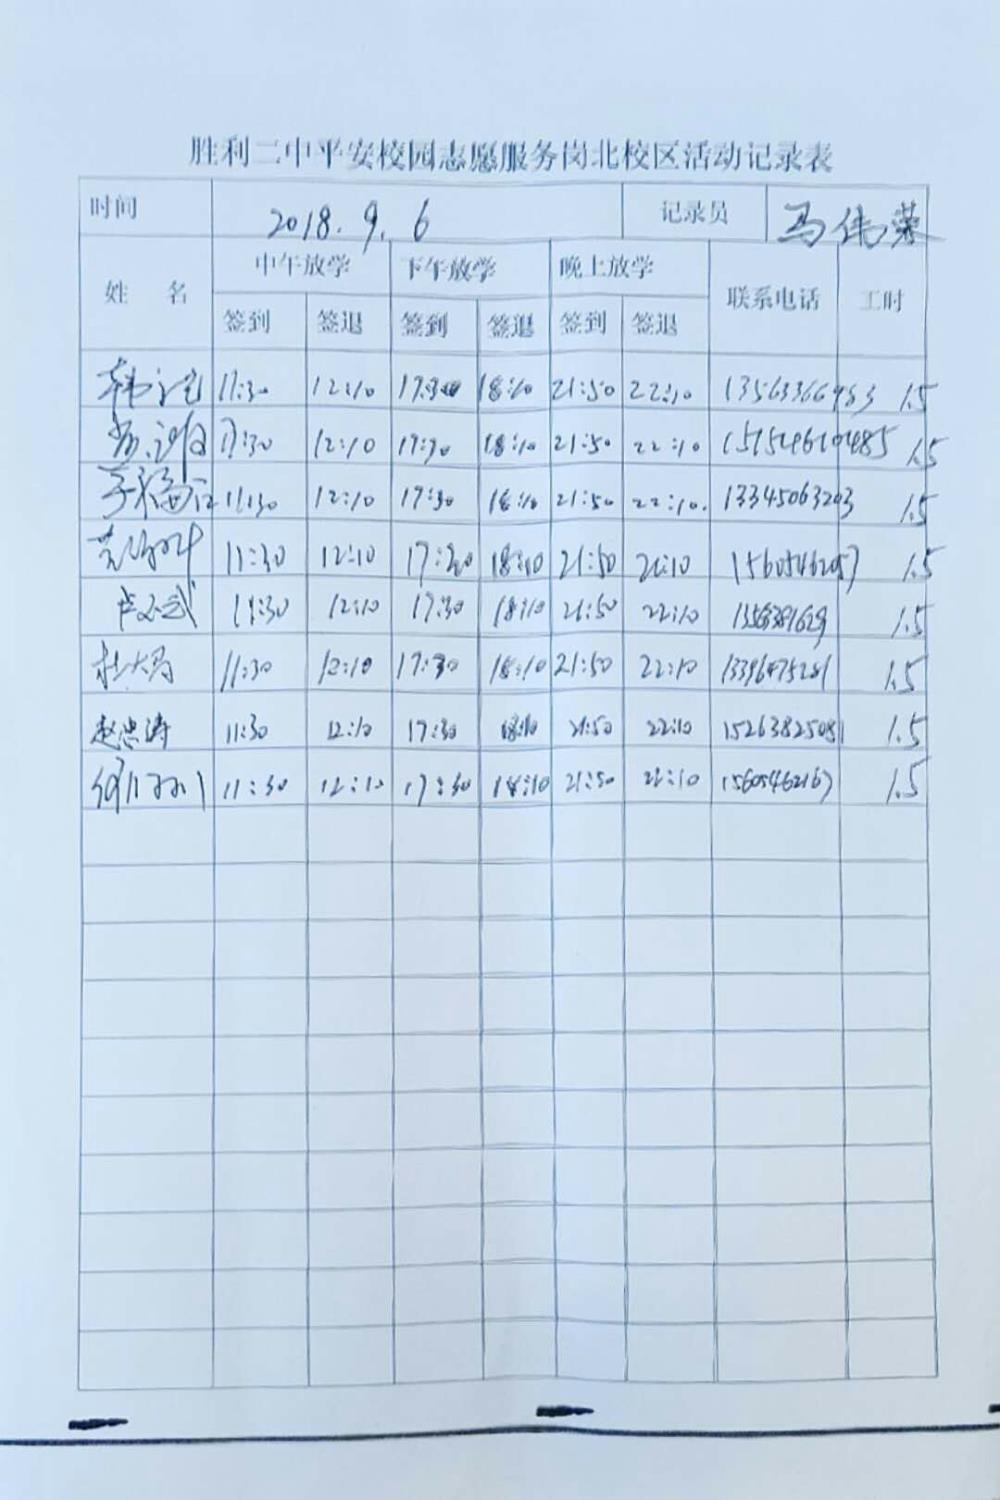 胜利二中平安校园志愿服务岗北校区活动记录表
时间 2018.9.6 记录员 马伟荣
姓名 中午放学 下午放学 晚上放学 联系电话 工时
签到 签退 签到 签退 签到 签退
11:30 12:10 17:30 18:10 21:50 22:10 13563366983 1.5
11:30 12:10 17:30 18:10 21:50 22:10 1.5
11:30 12:10 17:30 18:10 21:50 22:10. 13345063203 1.5
11:30 12:10 17:30 18:10 21:50 22:10 1.5
11:30 12:10 17:30 18:10 21:50 22:10 1.5
杜大为 11:30 12:10 17:30 18:10 21:50 22:10 1.5
赵忠涛 11:30 12:10 17:30 18:10 21:50 22:10 15263825081 1.5
11:30 12:10 17:30 18:10 21:50 22:10 15605462167 1.5